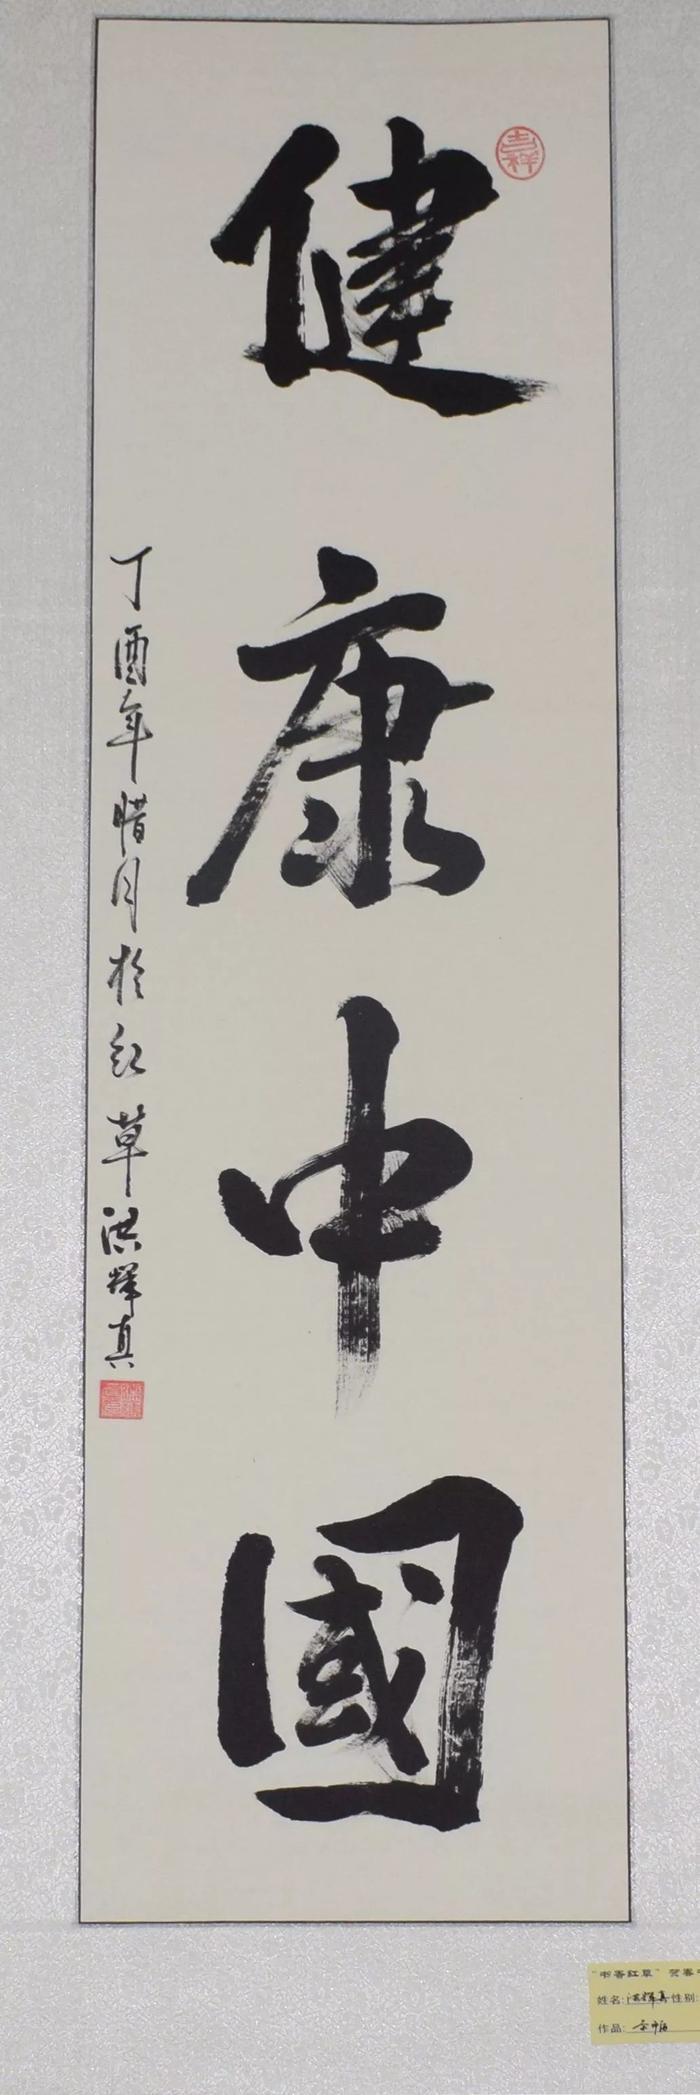 健康中國
吉祥
丁酉年腊月於红草洪辉真
"书香红草"贺春
姓名:洪辉真 性别:
作品: